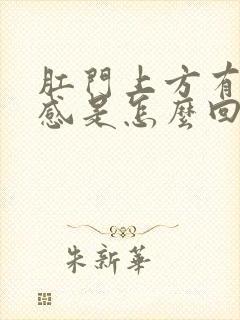 肛門上方有
感是怎麼回
朱新華